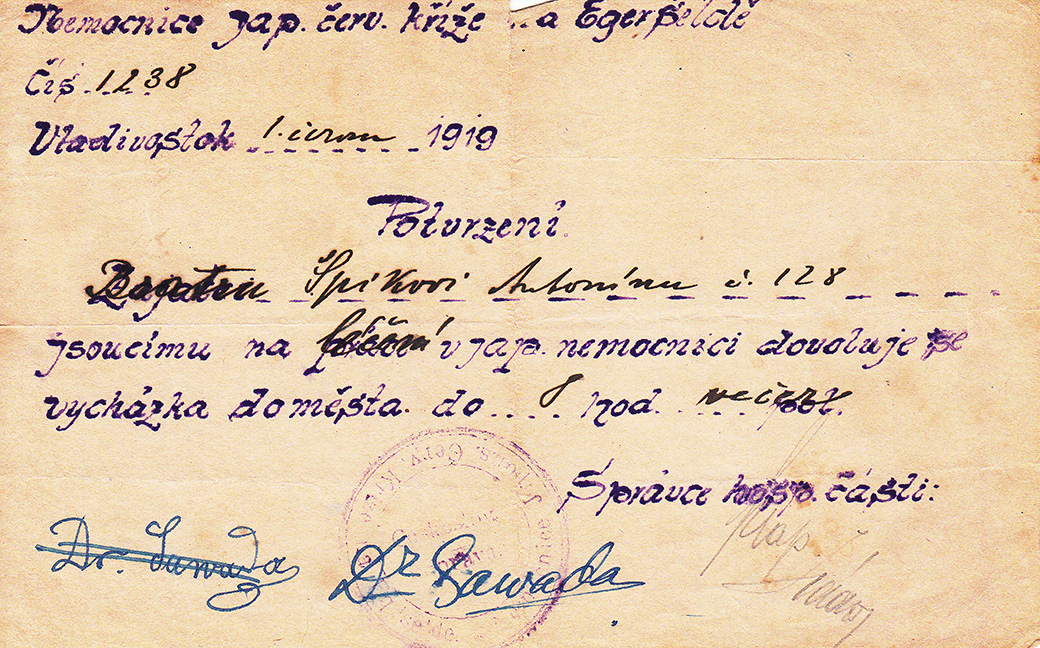 Nemocnice jap. červ. kříže na Egeršeldě
Čís. 1238
Vladivostok 1. února 1919
Potvrzení.
Špíkovi Antonínu č. 128
jsoucímu na léčení v jap. nemocnici dovoluje se
vycházka do města. do 8 hod. večer
Správce hosp. části:
Dr. Sawada
Dr Sawada
Kříže
Červ.